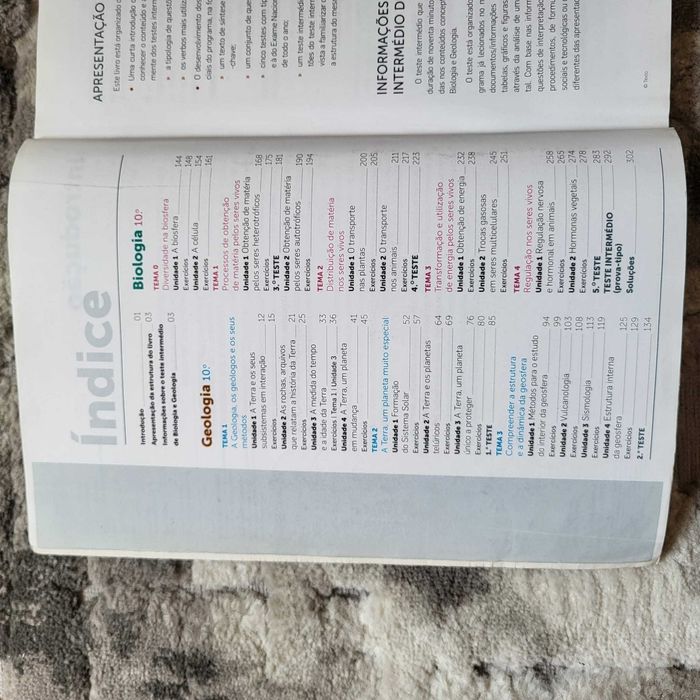 índice
Introdução 01
Apresentação da estrutura do livro 03
Informações sobre o teste intermédio
de Biologia e Geologia 03
Geologia 10º
TEMA 1
A Geologia, os geólogos e os seus
métodos
Unidade 1 A Terra e os seus
subsistemas em interação 12
Exercícios 15
Unidade 2 As rochas, arquivos
que relatam a história da Terra 21
Exercícios 25
Unidade 3 A medida do tempo
e a idade da Terra 33
Exercícios Tema 1 | Unidade 3 36
Unidade 4 A Terra, um planeta
em mudança 41
Exercícios 45
TEMA 2
A Terra, um planeta muito especial
Unidade 1 Formação
do Sistema Solar 52
Exercícios 57
Unidade 2 A Terra e os planetas
telúricos 64
Exercícios 69
Unidade 3 A Terra, um planeta
único a proteger 76
Exercícios 80
1.º TESTE 85
TEMA 3
Compreender a estrutura
e a dinâmica da geosfera
Unidade 1 Métodos para o estudo
do interior da geosfera 94
Exercícios 99
Unidade 2 Vulcanologia 103
Exercícios 108
Unidade 3 Sismologia 113
Exercícios 119
Unidade 4 Estrutura interna
da geosfera 125
Exercícios 129
2.º TESTE 134
Biologia 10º
TEMA 0
Diversidade na biosfera
Unidade 1 A biosfera 144
Exercícios 148
Unidade 2 A célula 154
Exercícios 161
TEMA 1
Processos de obtenção
de matéria pelos seres vivos
Unidade 1 Obtenção de matéria
pelos seres heterotróficos 168
Exercícios 175
3.º TESTE 181
Unidade 2 Obtenção de matéria
pelos seres autotróficos 190
Exercícios 194
TEMA 2
Distribuição de matéria
nos seres vivos
Unidade 1 O transporte
nas plantas 200
Exercícios 205
Unidade 2 O transporte
nos animais 211
Exercícios 217
4.º TESTE 223
TEMA 3
Transformação e utilização
de energia pelos seres vivos
Unidade 1 Obtenção de energia 232
Exercícios 238
Unidade 2 Trocas gasosas
em seres multicelulares 245
Exercícios 251
TEMA 4
Regulação nos seres vivos
Unidade 1 Regulação nervosa
e hormonal em animais 258
Exercícios 265
Unidade 2 Hormonas vegetais 274
Exercícios 278
5.º TESTE 283
TESTE INTERMÉDIO 292
(prova-tipo)
Soluções 302
APRESENTAÇÃO
Este livro está organizado
• Uma carta introdução
conhecer o conteúdo e
mente dos testes interm
a tipologia de quest
os verbos mais utiliz
• O desenvolvimento dos
ciais do programa, na fo
um texto de síntese
-chave;
um conjunto de que
cinco testes com tip
e à do Exame Nacio
de todo o ano;
um teste intermédi
tões do teste inter
vista a familiarizar
a estrutura do mes
INFORMAÇÕES
INTERMÉDIO D
O teste intermédio que
duração de noventa minuto
das nos conteúdos concept
Biologia e Geologia.
O teste está organizado
grama já lecionados no m
documentos/informações
tabelas, gráficos e figuras
através da análise de um
tal. Com base nas inform
questões de interpretação
procedimentos, de formu
sociais e tecnológicas ou
diferentes das apresentad